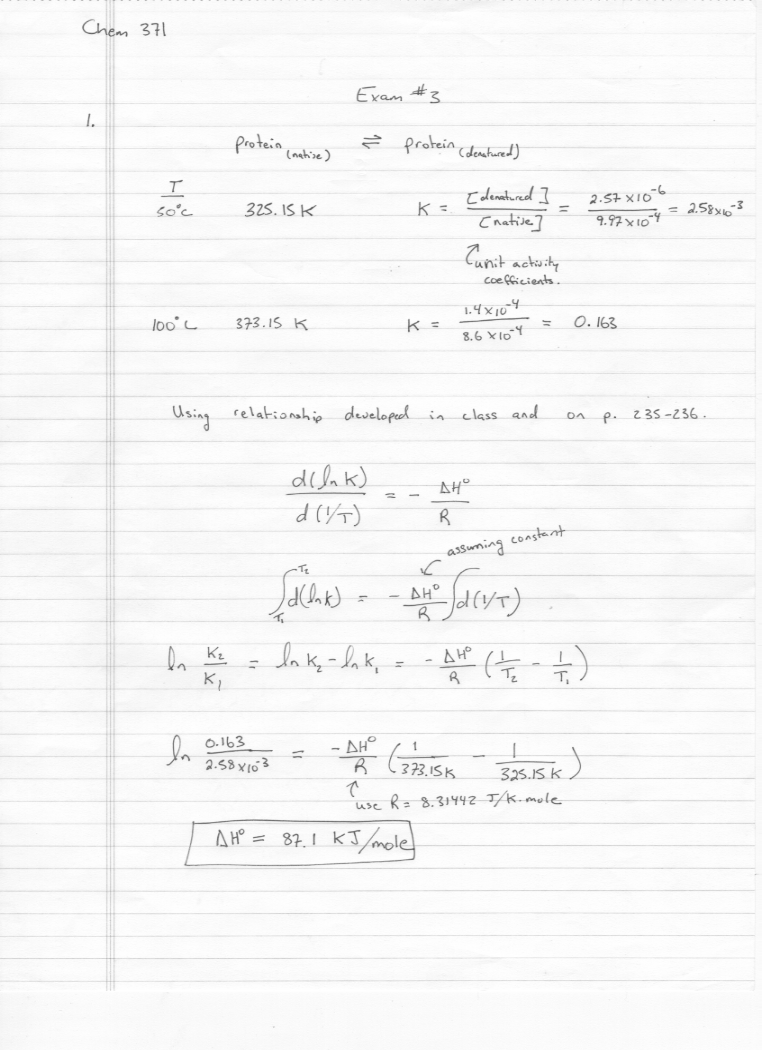 Chem 371
Exam #3
1.
protein (native) ⇌ protein (denatured)
T
50°C 325.15 K K = [denatured] / [native] = 2.57 x 10^-6 / 9.97 x 10^-4 = 2.58x10^-3
unit activity
coefficients.
100°C 373.15 K K = 1.4 x 10^-4 / 8.6 x 10^-4 = 0.163
Using relationship developed in class and on p. 235-236.
d(ln K) / d(1/T) = - ΔH° / R
assuming constant
∫_T1^T2 d(ln k) = - ΔH°/R ∫ d(1/T)
ln K2/K1 = ln K2 - ln K1 = - ΔH°/R (1/T2 - 1/T1)
ln 0.163 / 2.58 x 10^-3 = -ΔH°/R (1/373.15K - 1/325.15K)
use R = 8.31442 J/K.mole
ΔH° = 87.1 KJ/mole